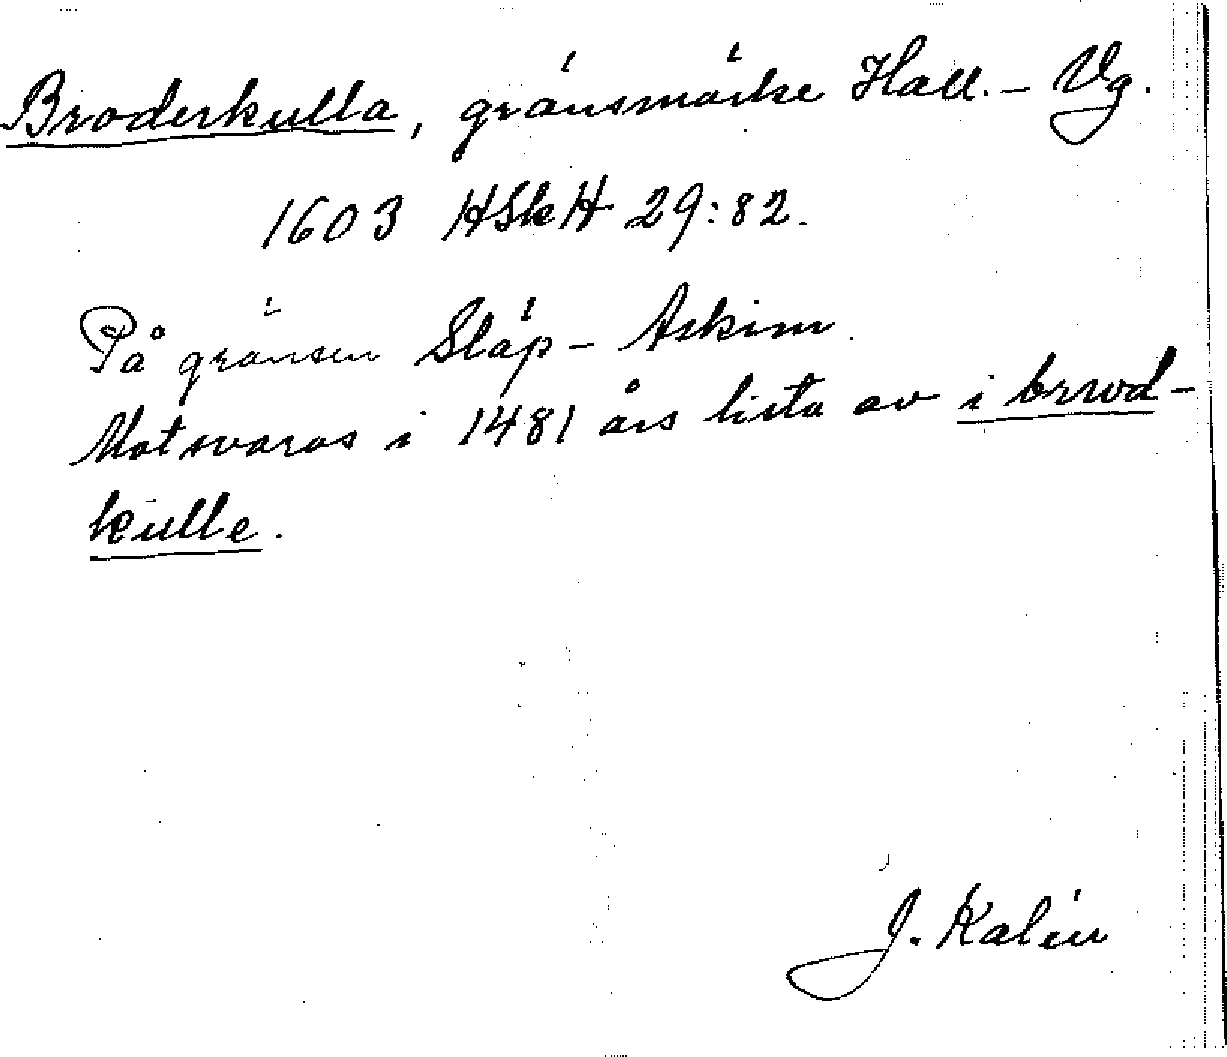 Broderkulla, gränsmärke Hall. – Vg.
1603 HSkH 29:82.
På gränsen Släp – Askim.
Motsvaras i 1481 års lista av i brwd-
kulle.
J. Kalén